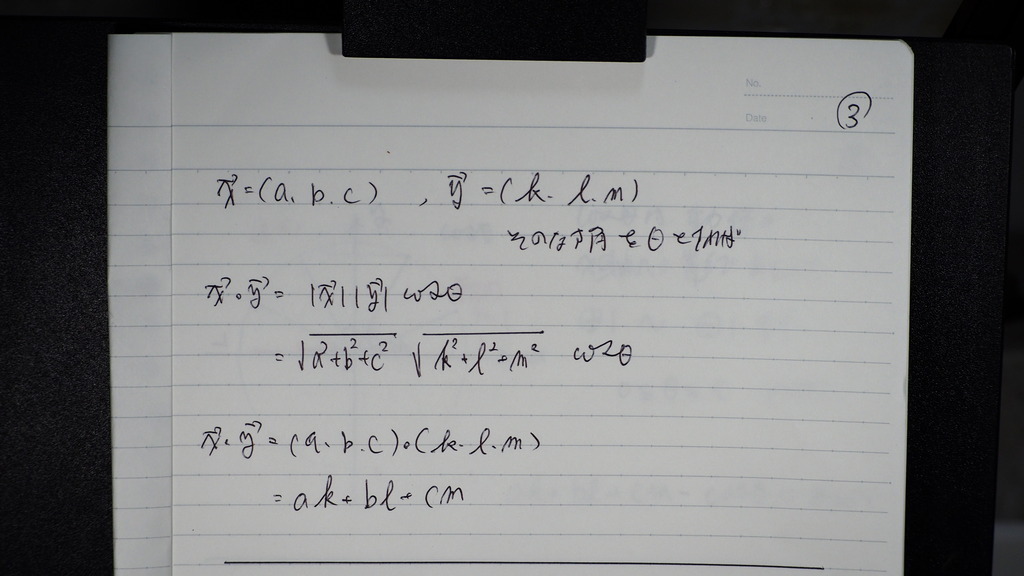 No.
Date
③
x⃗=(a. b. c) , y⃗=(k. l. m)
そのなす角をθとすれば
x⃗・y⃗= |x⃗||y⃗| cosθ
=√a²+b²+c² √k²+l²+m² cosθ
x⃗・y⃗=(a. b. c)・(k. l. m)
= ak+bl+cm